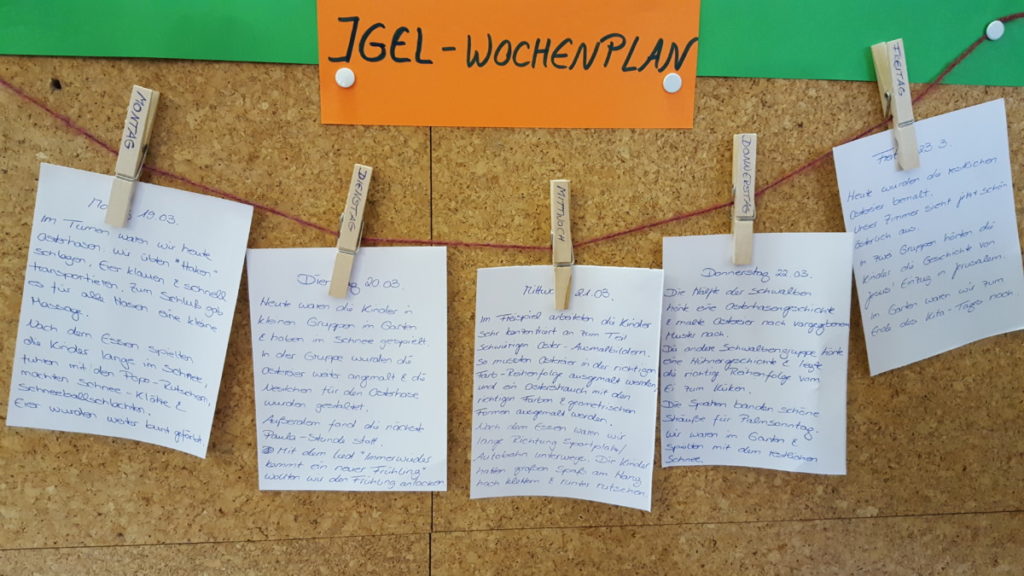 IGEL - WOCHENPLAN
MONTAG
19.03.
Im Turnen waren wir heute
Osterhasen. Wir übten "Haken"
schlagen, Eier klauen & schnell
transportieren. Zum Schluß gab
es für alle Hasen eine kleine
Massage.
Nach dem Essen spielten
die Kinder lange im Schnee,
fuhren mit den Popo-Rutschern,
machten Schnee-Klöße &
Schneeballschlachten.
Eier wurden weiter bunt gefärbt
DIENSTAG
Dienstag 20.03.
Heute waren die Kinder in
kleinen Gruppen im Garten
& haben im Schnee gespielt.
In der Gruppe wurden die
Ostereier weiter angemalt & die
Nestchen für den Osterhase
wurden gestaltet.
Außerdem fand die nächste
Paula-Stunde statt.
Mit dem Lied "Immer wieder
kommt ein neuer Frühling"
wollten wir den Frühling anlocken
MITTWOCH
Mittwoch 21.03.
Im Freispiel arbeiteten die Kinder
sehr konzentriert an zum Teil
schwierigen Oster-Ausmalbildern.
So mussten Ostereier in der richtigen
Farb-Reihenfolge ausgemalt werden
und ein Osterstrauch mit den
richtigen Farben & geometrischen
Formen ausgemalt werden.
Nach dem Essen waren wir
lange Richtung Sportplatz/
Autobahn unterwegs. Die Kinder
hatten großen Spaß am Hang
hoch klettern & runter rutschen.
DONNERSTAG
Donnerstag 22.03.
Die Hälfte der Schwalben
hörte eine Osterhasengeschichte
& malte Ostereier nach vorgegebenem
Muster nach.
Die andere Schwalbengruppe hörte
eine Hühnergeschichte & legte
die richtige Reihenfolge vom
Ei zum Küken.
Die Spatzen banden schöne
Sträuße für Palmsonntag.
Wir waren im Garten &
spielten mit dem restlichen
Schnee.
FREITAG
23.3.
Heute wurden die restlichen
Ostereier bemalt.
Unser Zimmer sieht jetzt schön
österlich aus.
In zwei Gruppen hörten die
Kinder die Geschichte von
Jesus' Einzug in Jerusalem.
Im Garten waren wir zum
Ende des Kita-Tages noch.